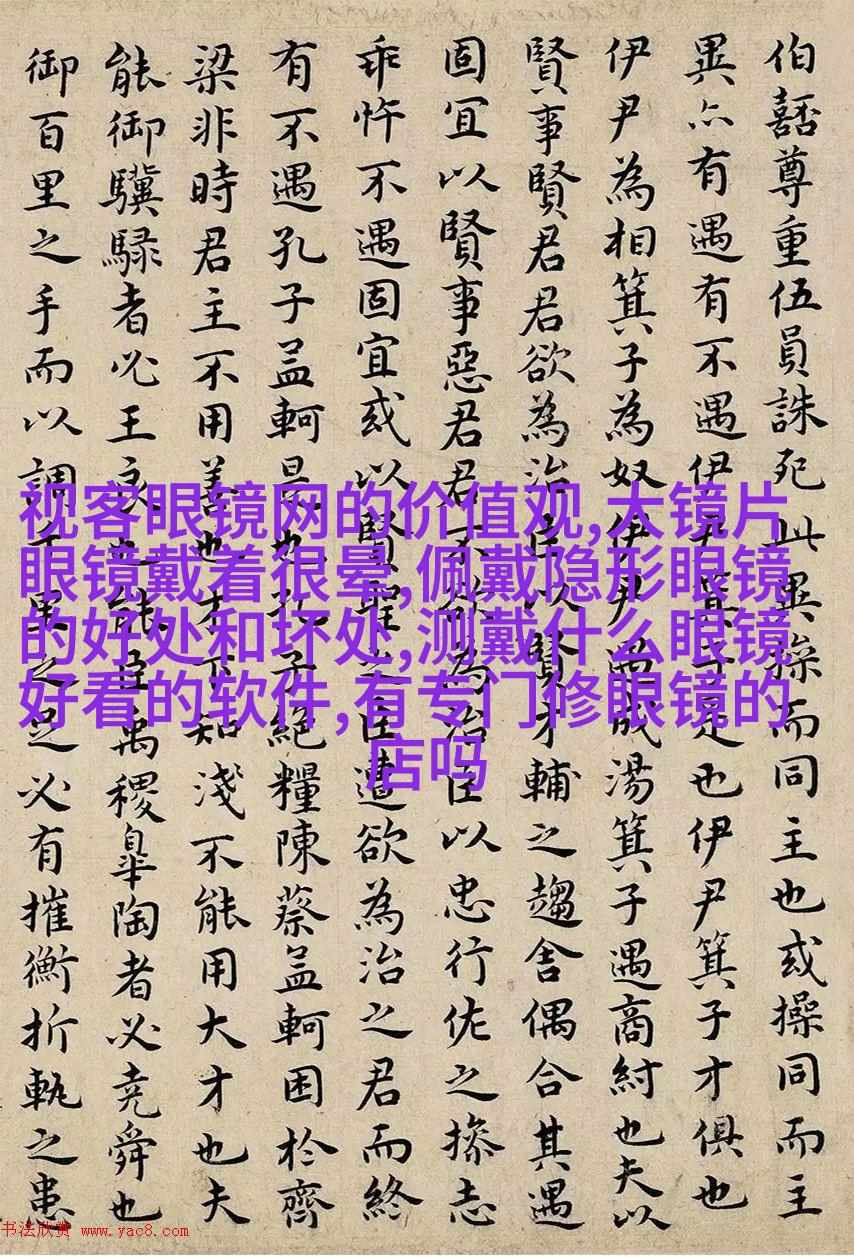 伯嚭尊重伍員誅死此異操而同主也或操同而主
異亦有遇有不遇伊尹箕子是也伊尹箕子才俱也
伊尹為相箕子為奴伊尹遇成湯箕子遇商紂也夫以
賢事賢君君欲為治臣以賢才輔之趨舍偶合其遇
固宜以賢事惡君君不欲為治臣以忠行佐之操志
乖忤不遇固宜或以賢聖之臣遭欲為治之君而終
有不遇孔子孟軻是也孔子絕糧陳蔡孟軻困於齊
梁非時君主不用善也才下知淺不能用大才也夫
能御驥騄者必王良也能臣禹稷皋陶者必堯舜也
御百里之手而以調千里之足必有摧衡折軛之患
视客眼镜网的价值观,大镜片
眼镜戴着很晕,佩戴隐形眼镜
的好处和坏处,测戴什么眼镜
好看的软件,有专门修眼镜的
店吗
书法欣赏 www.yac8.com